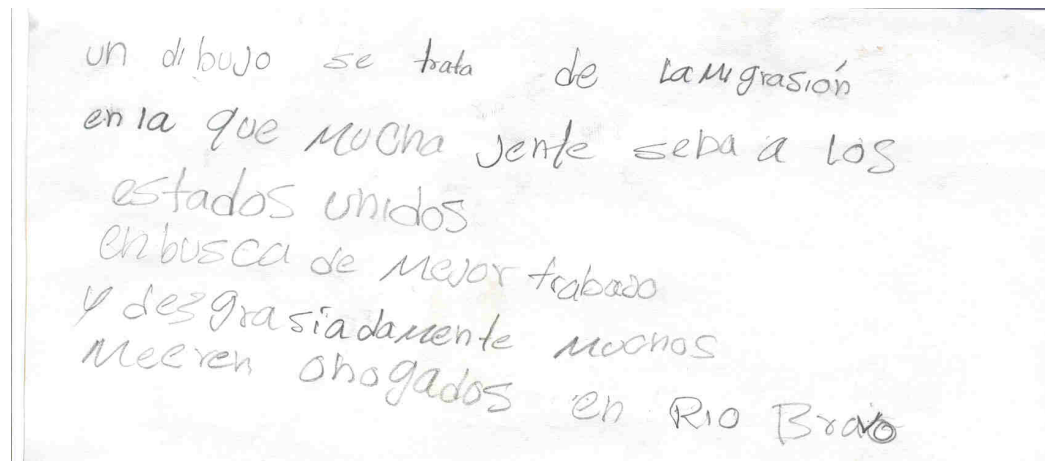 un dibujo se trata de la migrasión
en la que mucha jente seba a los
estados unidos
en busca de mejor trabajo
y dezgrasiadamente muchos
meeren ohogados en Rio Bravo